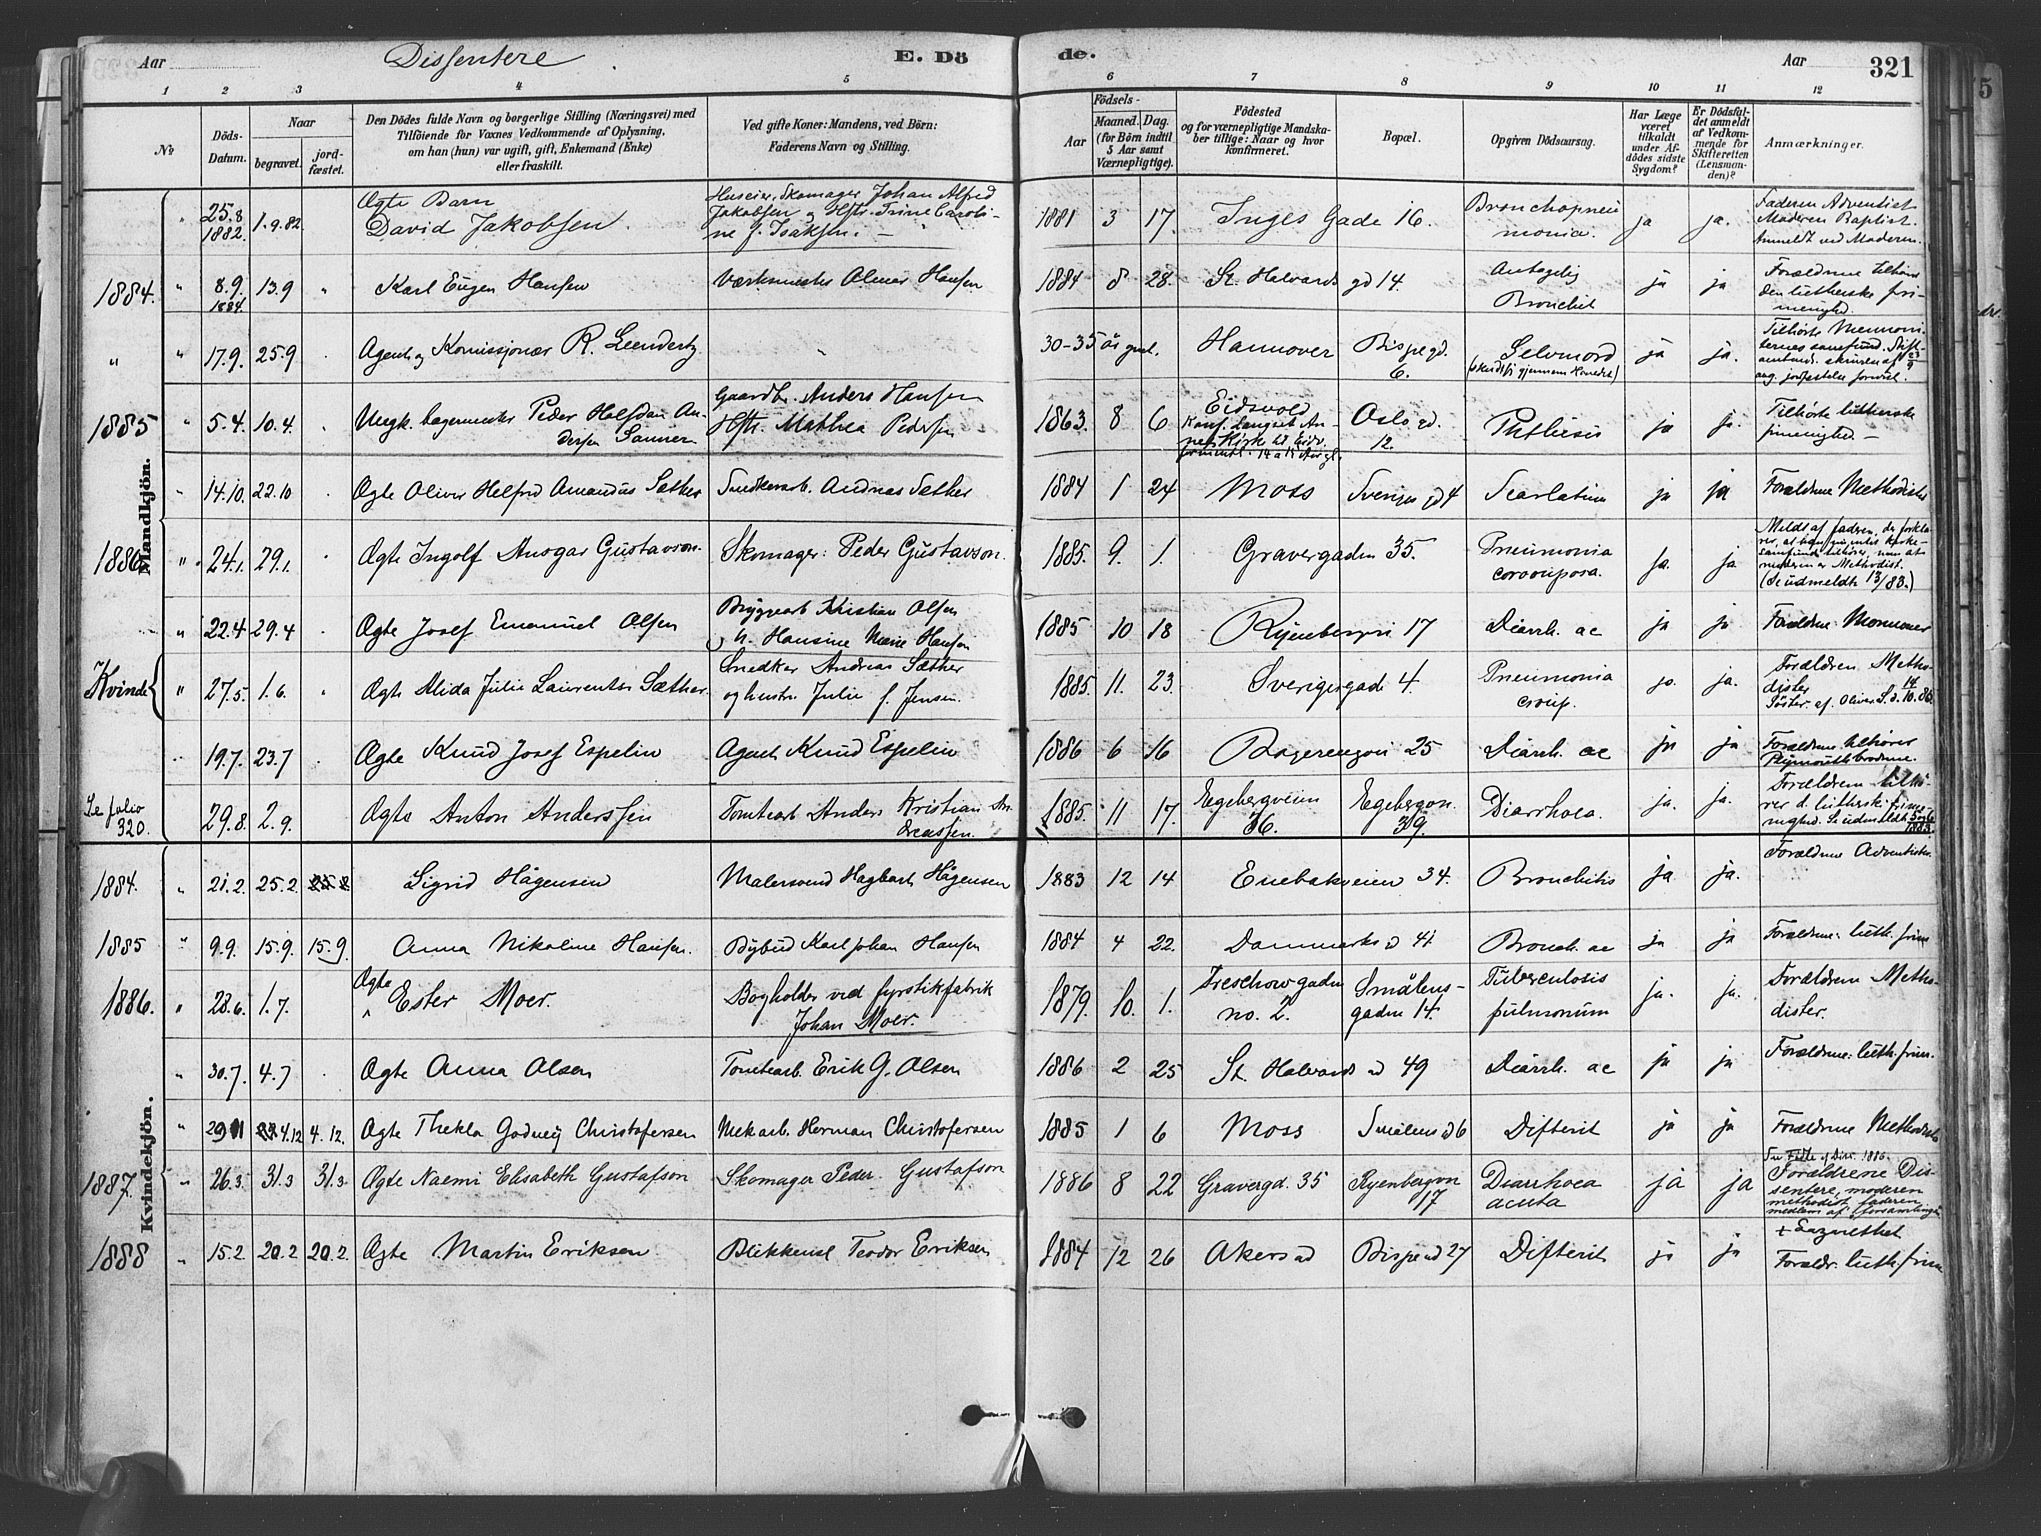 Aar
Dissentere
E. Dö
de.
Aar
321
1 2 3 4 5 6 7 8 9 10 11 12
No
Döds-
Datum.
Naar
begravet.
jord-
fæstet.
Den Dödes fulde Navn og borgerlige Stilling (Næringsvei) med
Tilföiende for Voxnes Vedkommende af Oplysning,
om han (hun) var ugift, gift, Enkemand (Enke)
eller fraskilt.
Ved gifte Koner: Mandens, ved Börn:
Faderens Navn og Stilling.
Födsels-
Aar
Maaned. Dag.
(for Börn indtil
5 Aar samt
Værnepligtige).
Födested
og for værnepligtige Mandska-
ber tillige: Naar og hvor
konfirmeret.
Bopæl.
Opgiven Dödsaarsag.
Har Læge
været
tilkaldt
under Af-
dödes sidste
Sygdom?
Er Dödsfal-
det anmeldt
af Vedkom-
mende for
Skifteretten
(Lensman-
den)?
Anmærkninger.
Mandkjön.
" 25.8 1882. 1.9.82. Ægte Barn
David Jakobsen.
Huseier, Skomager Johan Alfred
Jakobsen og Hst. Trine Caroli-
ne f. Isaksen. —
1881 3 17. Inges Gade 16. Bronchopneu
monia. ja ja.
Faderen Adventist
Moderen Baptist.
Anmeldt ved Moderen.
1884. " 8.9. 1884. 13.9 " Karl Eugen Hansen Værksmester Olmar Hansen
1884 8 28. St. Halvards gd 14. Antagelig
Bronchit ja ja
Forældrene tilhöre
den lutherske fri-
menighed.
" " 17.9. 25.9 . Agent og Komissjonær R. Leendertz "
30-35 år gml. Hannover Bispegd.
6. Selvmord
(skudt sig gjennem Hovedet) ja ja.
Tilhörte Mennoni-
ternes samfund. Stift-
amtmd. skrivelse af 23/9
ang. jordfæstelse forevist.
1885 " 5.4. 10.4. . Ungk. bagermester Peder Halfdan An-
dersen Sanner
Gaardbr. Anders Hansen
Hstr. Mathea Pedersen
1863. 8 6. Eidsvold
Konf. Langset An-
nex Kirke til Eidsv.
Oslo gd.
12. Phthisis ja ja.
Tilhörte lutherske
frimenighed. —
" 14.10. 22.10 . Ægte Oliver Helfred Amandus Sæther Snedkerarb. Andreas Sæther
1884 1 24 Moss Sveriges gd 4 Scarlatina ja ja Forældrene Methodister
1886 " 24.1. 29.1 Ægte Ingolf Ansgar Gustavson. Skomager: Peder Gustavson.
1885. 9. 1. Gravergaden 35. Pneumonia
crouposa. ja. ja
Meldt af faderen, der forkla-
rer, at han ingen Kirke-
samfund tilhörer, men at
moderen er Methodist.
(Se udmeldte 13/83.)
" 22.4 29.4 . Ægte Josef Emanuel Olsen Bryggearb Kristian Olsen
og h. Hansine Marie Hansen
1885 10 18 Ryenbergvei 17 Diarrh. ac ja ja Forældrene Mormoner
Kvinde " 27.5. 1.6. " Ægte Alida Julie Laurentse Sæther. Snedker Andreas Sæther
og hustr. Julie f. Jensen.
1885. 11. 23. Sverigesgade 4. Pneumonia
croup. ja. ja.
Forældren Metho-
dister
Söster. af. Oliver S. d. 14/10. 85
19.7. 23.7 . Ægte Knud Josef Espelin Agent Knud Espelin
1886 6 16 Bogerengvei 25 Diarrh. ac ja ja Forældrene tilhörer
Plymouthbrödrene.
Se folio
320. 29.8. 2.9. Ægte Anton Anderssen Tomtearb Anders Kristian An
dreassen.
1885. 11 17. Egebergveien
36. Egebergvn.
39. Diarrhoea. ja. ja.
Forældren tilhö-
rer d. luthersk. frime-
nighed. Se udmeldte 5 og 6
1883.
Kvindekjön.
1884. " 21.2. 25.2. Sigrid Hågensen Malersvend Hagbart Hågensen
1883 12 14 Enebakveien 34. Bronchitis ja ja. Forældrene Adventister.
1885 " 9.9. 15.9. 15.9. Anna Nikoline Hansen. Bybud Karl Johan Hansen
1884 4 22. Danmarks gd 41. Bronch. ac ja ja Forældrene: luth. frim
1886. " 28.6. 1.7. Ægte
Ester Moer. Bogholder ved fyrstikfabrik
Johan Moer.
1879. 10. 1. Treschowgaden
no. 2. Smålens-
gaden 14. Tuberculosis
pulmonum ja. ja. Forældren Metho-
dister.
" 30.7. 4.7 . Ægte Anna Olsen Tomtearb. Erik G. Olsen
1886 2 25 St. Halvards gd 49 Diarrh. ac ja ja Forældrene: luth. frim.
" 29 11 4.12 4.12. Ægte Thekla Godney Christofersen Mekarb. Herman Christofersen
1885 1 6 Moss Smålens gd 6 Difterit ja ja Forældrene Methodister
1887. " 26.3. 31.3 31.3. Ægte Naemi Elisabeth Gustafson Skomager Peder Gustafson
1886 8 22 Gravergd. 35 Ryenbergvn
17 Diarrhoea
acuta ja ja
Forældrene Dis-
sentere, moderen
methodist, faderen
medlem af "forsamlingen
1888 " 15.2. 20.2 20.2. Ægte Martin Eriksen Blikkensl. Teodor Eriksen
1884 12 26 Akers gd Bispegd 27 Difterit ja ja
+ Lazarethet
Forældr. luth. frim